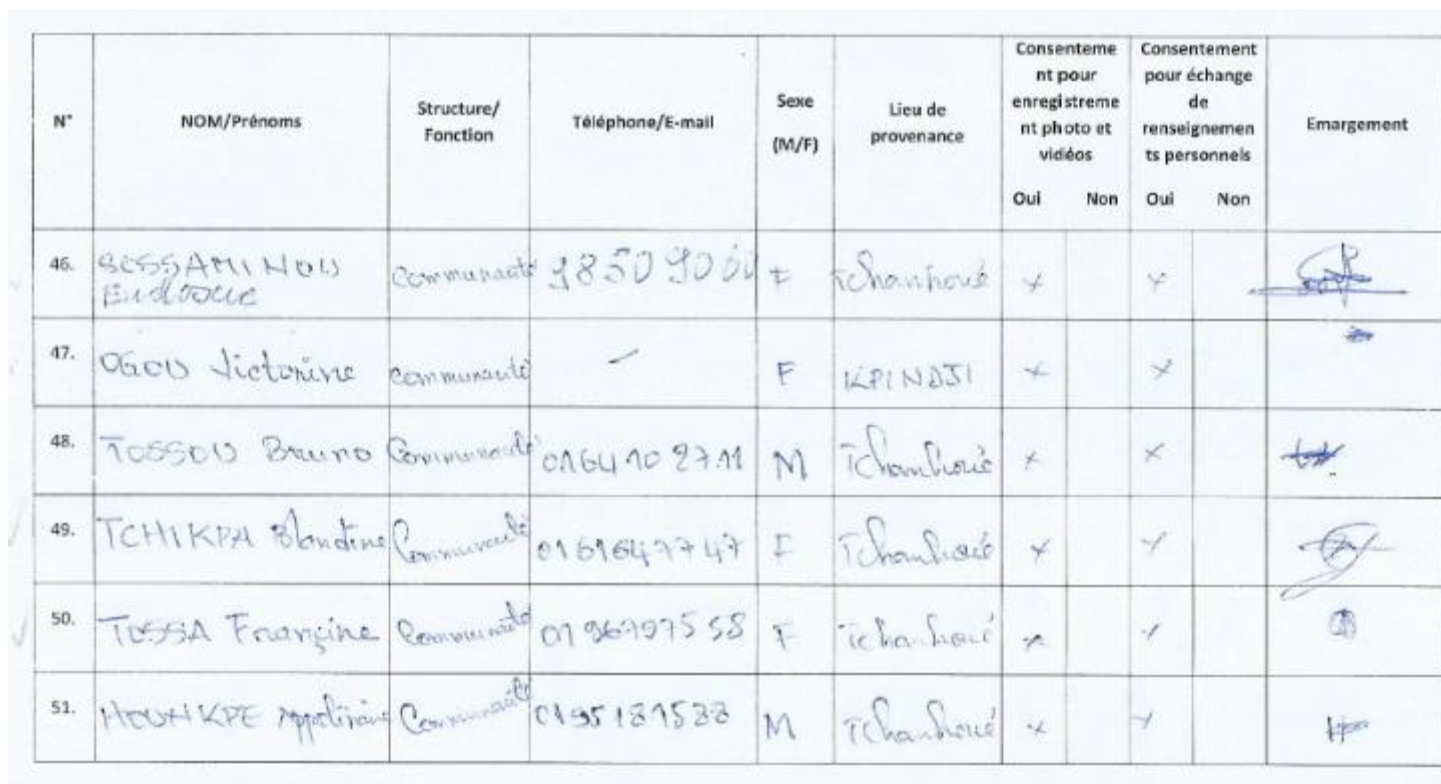 N° NOM/Prénoms Structure/ Fonction Téléphone/E-mail Sexe (M/F) Lieu de provenance Consenteme nt pour enregistreme nt photo et vidéos Oui Non Consentement pour échange de renseignemen ts personnels Oui Non Emargement
46. SESSAMINOU Communauté F Tchanhoué x x
47. OGOU Victorine communauté - F KPINDJI x x
48. TOSSOU Bruno Communauté 0164102711 M Tchanhoué x x
49. TCHIKPA Blandine Communauté 0161647747 F Tchanhoué x x
50. TOSSA Françine Communauté 0196797558 F Tchanhoué x x
51. HOUNKPE Appolinaire Communauté M Tchanhoué x x